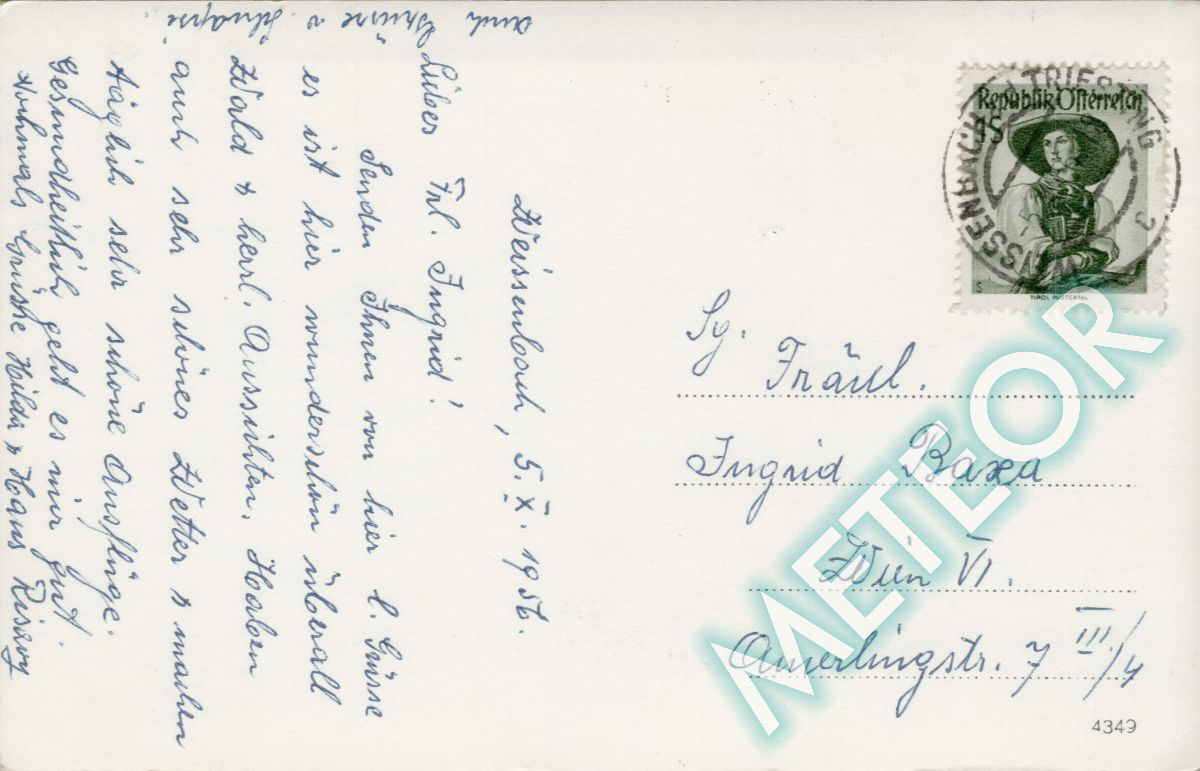 Weissenbach, 5.X.1956.
Liebes Frl. Ingrid!
Senden Ihnen von hier l. Grüsse
es ist hier wunderschön überall
Wald & herrl. Aussichten. Haben
auch sehr schönes Wetter & machen
täglich sehr schöne Ausflüge.
Gesundheitlich geht es mir gut.
Nochmals Grüsse Hilda & Hans
auch
Republik Österreich
1S
TIROL PUSTERTAL
WEISSENBACH TRIESTING
Sg.
Fräul.
Ingrid Baxa
Wien VI.
Amerlingstr. 7 III/4
4349
METEOR